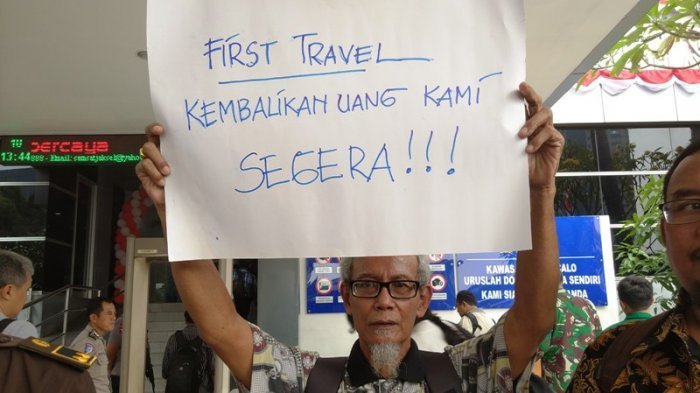 FIRST TRAVEL
KEMBALIKAN UANG KAMI
SEGERA!!!
percaya
13:44
Email:
KAWAS
ALO
URUSLAH DO
A SENDIRI
KAMI SIA
ANDA